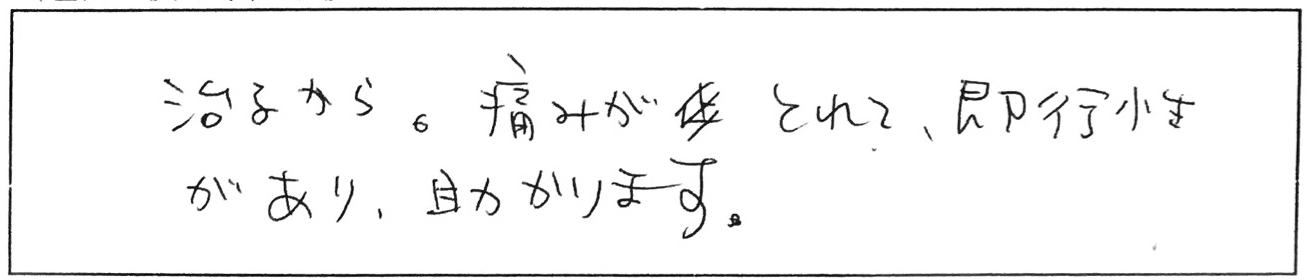 治るから。痛みがとれて、即行性
があり、助かります。